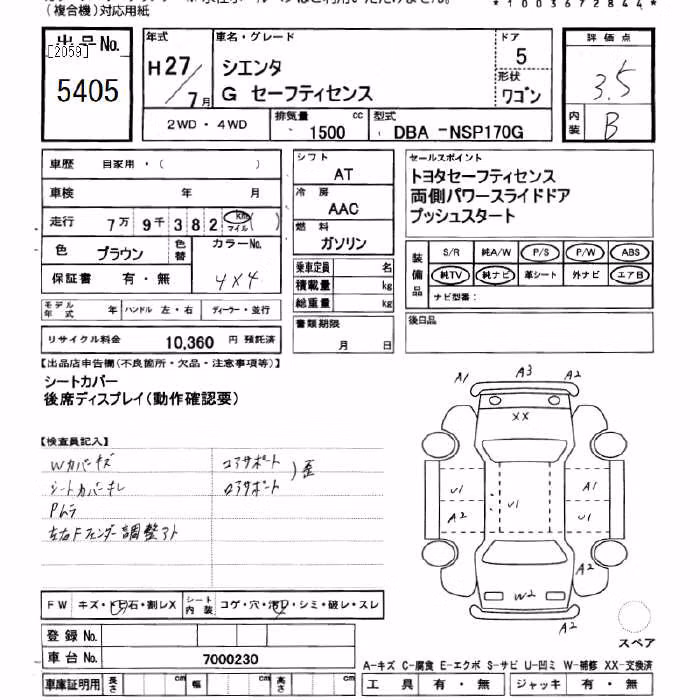 (複合機)対応用紙
*1003672844*
出品No.
[2059]
5405
年式
H27/7月
車名・グレード
シエンタ
G セーフティセンス
ドア
5
形状
ワゴン
評価点
3.5
内装
B
2WD・4WD
排気量
1500 cc
型式
DBA -NSP170G
車歴 自家用・( )
車検 年 月
走行 7万 9千 3 8 2 km マイル ( )
色 ブラウン 色替 カラーNo.
保証書 有・無 4X4
モデル年式 年 ハンドル 左・右 ディーラー・並行
リサイクル料金 10,360 円 預託済
シフト
AT
冷房
AAC
燃料
ガソリン
乗車定員 名
積載量 kg
総重量 kg
書類期限
月 日
セールスポイント
トヨタセーフティセンス
両側パワースライドドア
プッシュスタート
装備品
S/R 純A/W P/S P/W ABS
純TV 純ナビ 革シート 外ナビ エアB
ナビ型番:
後日品
【出品店申告欄(不良箇所・欠品・注意事項等)】
シートカバー
後席ディスプレイ(動作確認要)
【検査員記入】
Wカバーキズ コアサポート
シートカバーキレ ロアサポート )歪
Pムラ
左右Fフェンダー調整アト
A1 A3 A2
XX
U1 U1 A1
A2 U1
A2
W2
A2
スペア
FW キズ・トビ石・割レX シート内装 コゲ・穴・汚レ・シミ・破レ・スレ
登録No.
車台No. 7000230
車庫証明用 長さ cm 幅 cm 高さ cm
A-キズ C-腐食 E-エクボ S-サビ U-凹ミ W-補修 XX-交換済
工具 有・無 ジャッキ 有・無